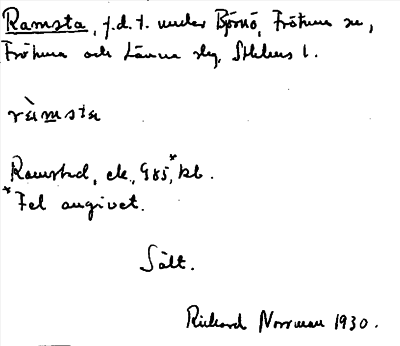 Ramsta, f.d. t. under Björnö, Frötuna sn,
Frötuna och Länna skg, Sthlms l.
ràmsta
Ramstad, ek., 985,* kbl.
*Fel angivet.
Sält.
Rickard Norrman 1930.